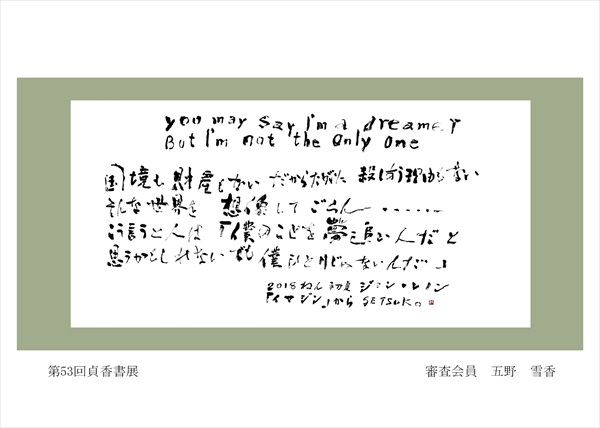 you may say I'm a dreamer
But I'm not the only one
国境も財産もない だから互いに 殺し合う理由も無い
そんな世界を 想像してごらん‥‥‥
こう言うと人は「僕のことを夢を追う人だと
思うかもしれないでも 僕はひとりじゃないんだ」
2018ねん初夏 ジョン・レノン
「イマジン」から SETSUKO。
第53回貞香書展
審査会員 五野 雪香